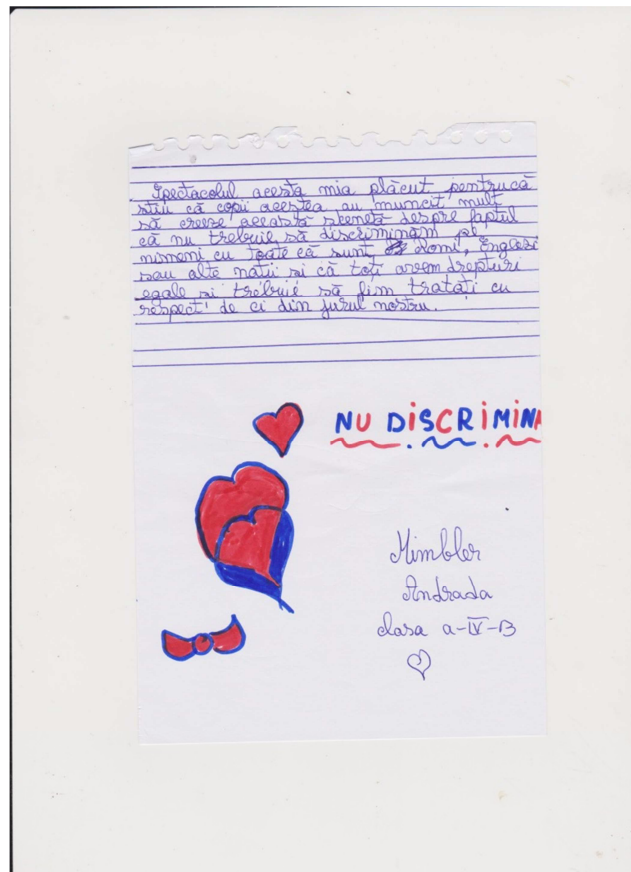 Spectacolul acesta mia plăcut pentrucă
stiu că copii acestea au muncit mult
să creeze această scenetă despre faptul
că nu trebuie să discriminăm pe
nimeni cu toate că sunt Romi, Englezi
sau alte natii si că toți avem drepturi
egale si trebuie să fim tratați cu
respect de ci din jurul nostru.
NU DISCRIMINA
Himbler
Andrada
clasa a-IV-B